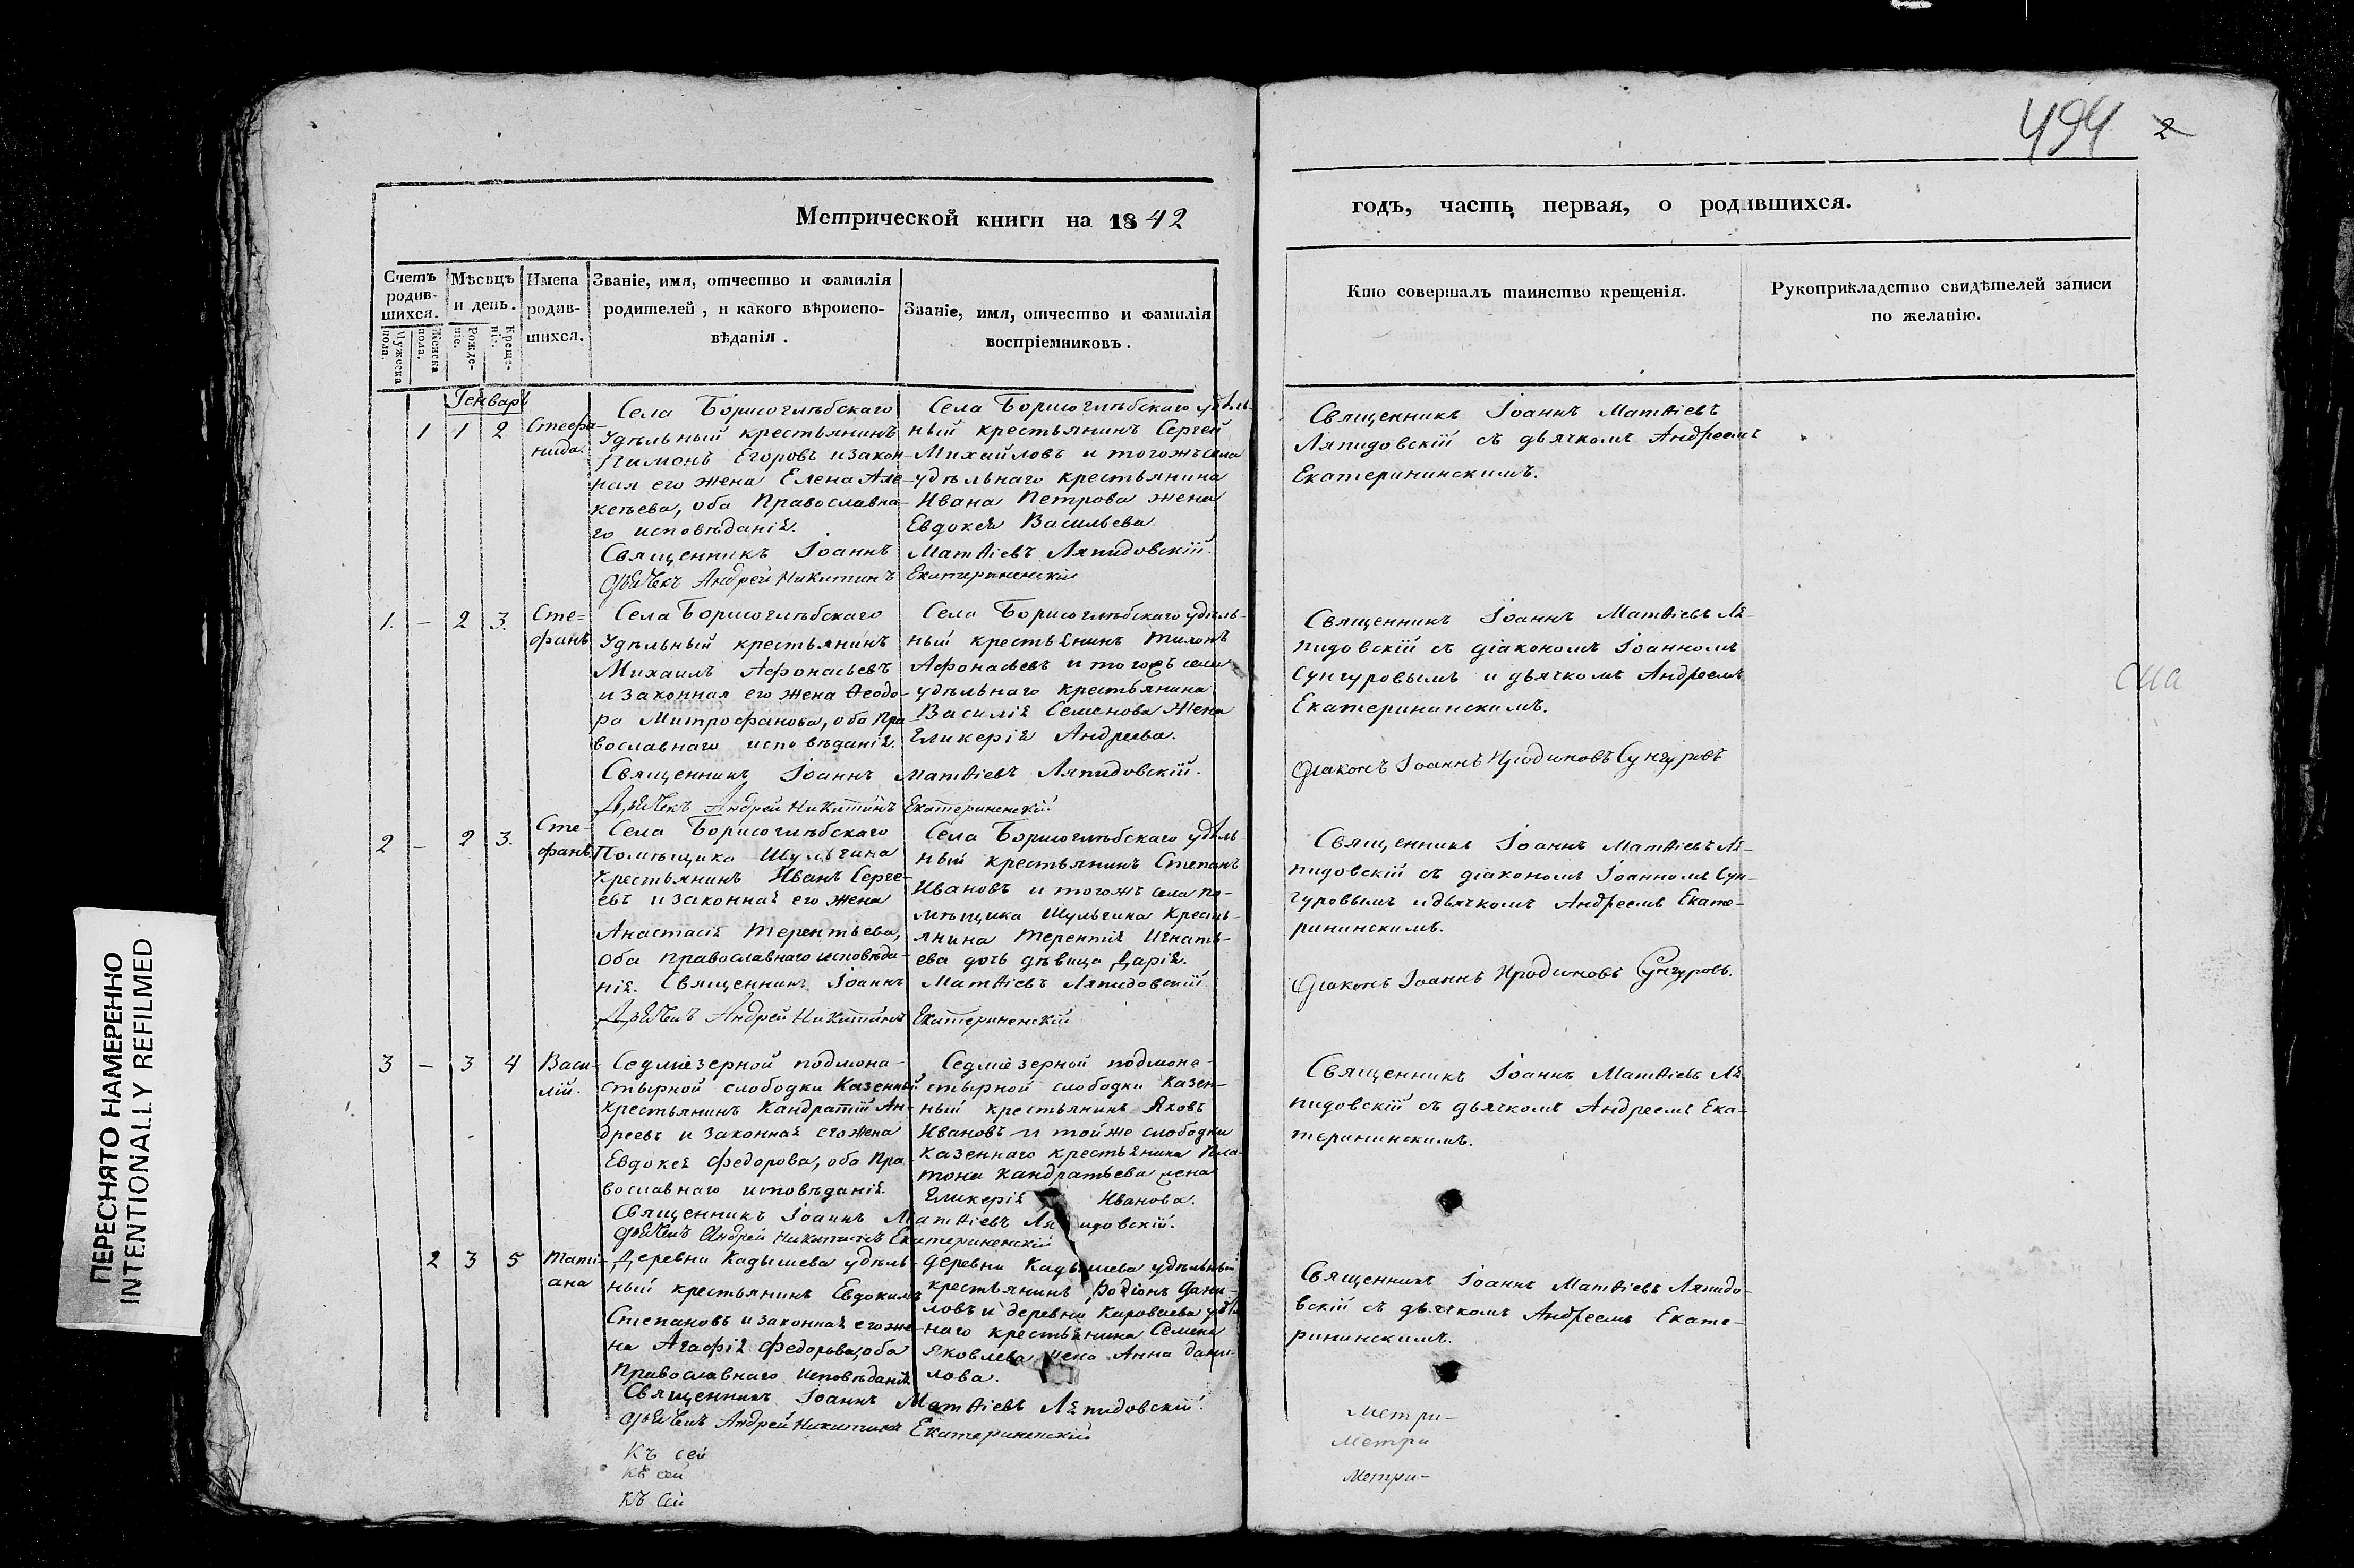 494 2
Метрической книги на 1842
годъ, часть первая, о родившихся.
Счетъ родив-шихся.
Мужеска пола.
Женска пола.
Мѣсяцъ и день.
Рожде-нiе.
Креще-нiе.
Имена родив-шихся.
Званiе, имя, отчество и фамилiя
родителей, и какого вѣроиспо-
вѣданiя.
Званiе, имя, отчество и фамилiя
воспрiемниковъ.
Кто совершалъ таинство крещенiя.
Рукоприкладство свидѣтелей записи
по желанiю.
Генварь
1 1 2
Стефа-
нида.
Села Борисоглѣбскаго
Удѣльный крестьянинъ
Пимонъ Егоровъ и закон-
ная его жена Елена Але-
ксѣева, оба Православна-
го исповѣданiя.
Села Борисоглѣбскаго удѣль-
ный крестьянинъ Сергей
Михайловъ и тогожъ села
удѣльнаго крестьянина
Ивана Петрова жена
Евдокея Васильева
Священникъ Iоаннъ Матѳiевъ Ляпидовскiй.
Дьячекъ Андрей Никитинъ Екатериненскiй
Священникъ Iоаннъ Матѳiевъ
Ляпидовскiй съ дьячкомъ Андреемъ
Екатерининскимъ.
1. – 2 3.
Сте=
фанъ
Села Борисоглѣбскаго
Удѣльный крестьянинъ
Михаилъ Афонасьевъ
и законная его жена Ѳеодо-
ра Митрофанова, оба Пра-
вославнаго исповѣданiя.
Села Борисоглѣбскаго удѣль-
ный крестьянинъ Тихонъ
Афонасьевъ и тогожъ села
удѣльнаго крестьянина
Василiя Семенова жена
Гликерiя Андреева.
Священникъ Iоаннъ Матѳiевъ Ляпидовскiй.
Дьячекъ Андрей Никитинъ Екатериненскiй
Священникъ Iоаннъ Матѳiевъ Ля-
пидовскiй съ дiакономъ Iоанномъ
Сунгуровымъ и дьячкомъ Андреемъ
Екатерининскимъ.
Дiаконъ Iоаннъ Иродионовъ Сунгуровъ
США
2 – 2 3.
Сте-
фанъ
Села Борисоглѣбскаго
Помѣщика Шульгина
крестьянинъ Иванъ Серге-
евъ и законная его жена
Анастасiя Терентьева,
оба православнаго исповѣда-
нiя. Священникъ Iоаннъ Матѳiевъ Ляпидовскiй.
Села Борисоглѣбскаго удѣль
ный крестьянинъ Степанъ
Ивановъ и тогожъ села по-
мѣщика Шульгина кресть-
янина Терентiя Игнать-
ева дочь дѣвица Дарiя.
Дьячекъ Андрей Никитинъ Екатериненскiй
Священникъ Iоаннъ Матѳiевъ Ля-
пидовскiй съ дiакономъ Iоанномъ Сун-
гуровымъ и дьячкомъ Андреемъ Екате-
рининскимъ.
Дiаконъ Iоаннъ Иродионовъ Сунгуровъ.
3 – 3 4
Васи-
лiй.
Седмiезерной подмона-
стырной слободки Казенный
крестьянинъ Кандратiй Ан-
дреевъ и законная его жена
Евдокея Федорова, оба Пра-
вославнаго исповѣданiя.
Седмiезерной подмона-
стырной слободки Казен-
ный крестьянинъ Яковъ
Ивановъ и тойже слободки
казеннаго крестьянина Пла-
тона Кандратьева жена
Гликерiя Иванова.
Священникъ Iоаннъ Матѳiевъ Ляпидовскiй.
Дьячекъ Андрей Никитинъ Екатериненскiй
Священникъ Iоаннъ Матѳiевъ Ля-
пидовскiй съ дьячкомъ Андреемъ Ека-
терининскимъ.
2 3 5
Татi-
ана
Деревни Кадышева удѣль-
ный крестьянинъ Евдокимъ
Степановъ и законная его же-
на Агафiя Федорова, оба
Православнаго исповѣданiя.
деревни Кадышева удѣльный
крестьянинъ Родiонъ Дани-
ловъ и деревни удѣль
наго крестьянина Семена
Яковлева жена Анна Дани-
лова.
Священникъ Iоаннъ Матѳiевъ Ляпидовскiй.
Дьячекъ Андрей Никитинъ Екатериненскiй
Священникъ Iоаннъ Матѳiевъ Ляпидо-
вскiй съ дьячкомъ Андреемъ Екате-
рининскимъ.
Къ сей
Къ сей
Къ сей
Метри-
Метри
Метри-
ПЕРЕСНЯТО НАМЕРЕННО
INTENTIONALLY REFILMED